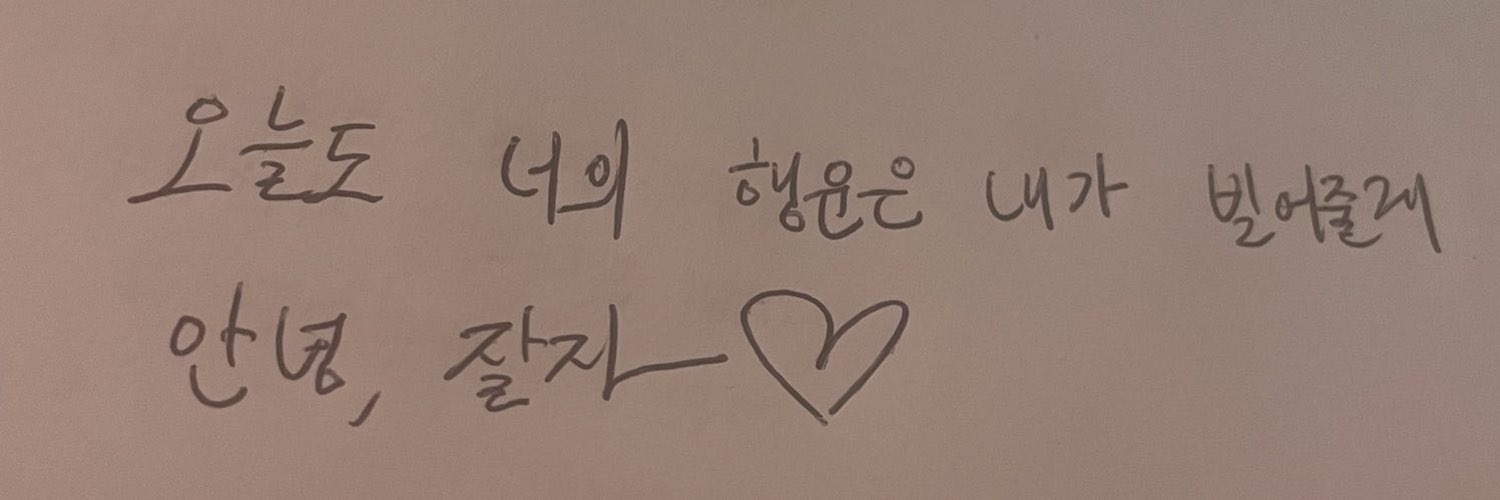 오늘도 너의 행운은 내가 빌어줄래
안녕, 잘자♡